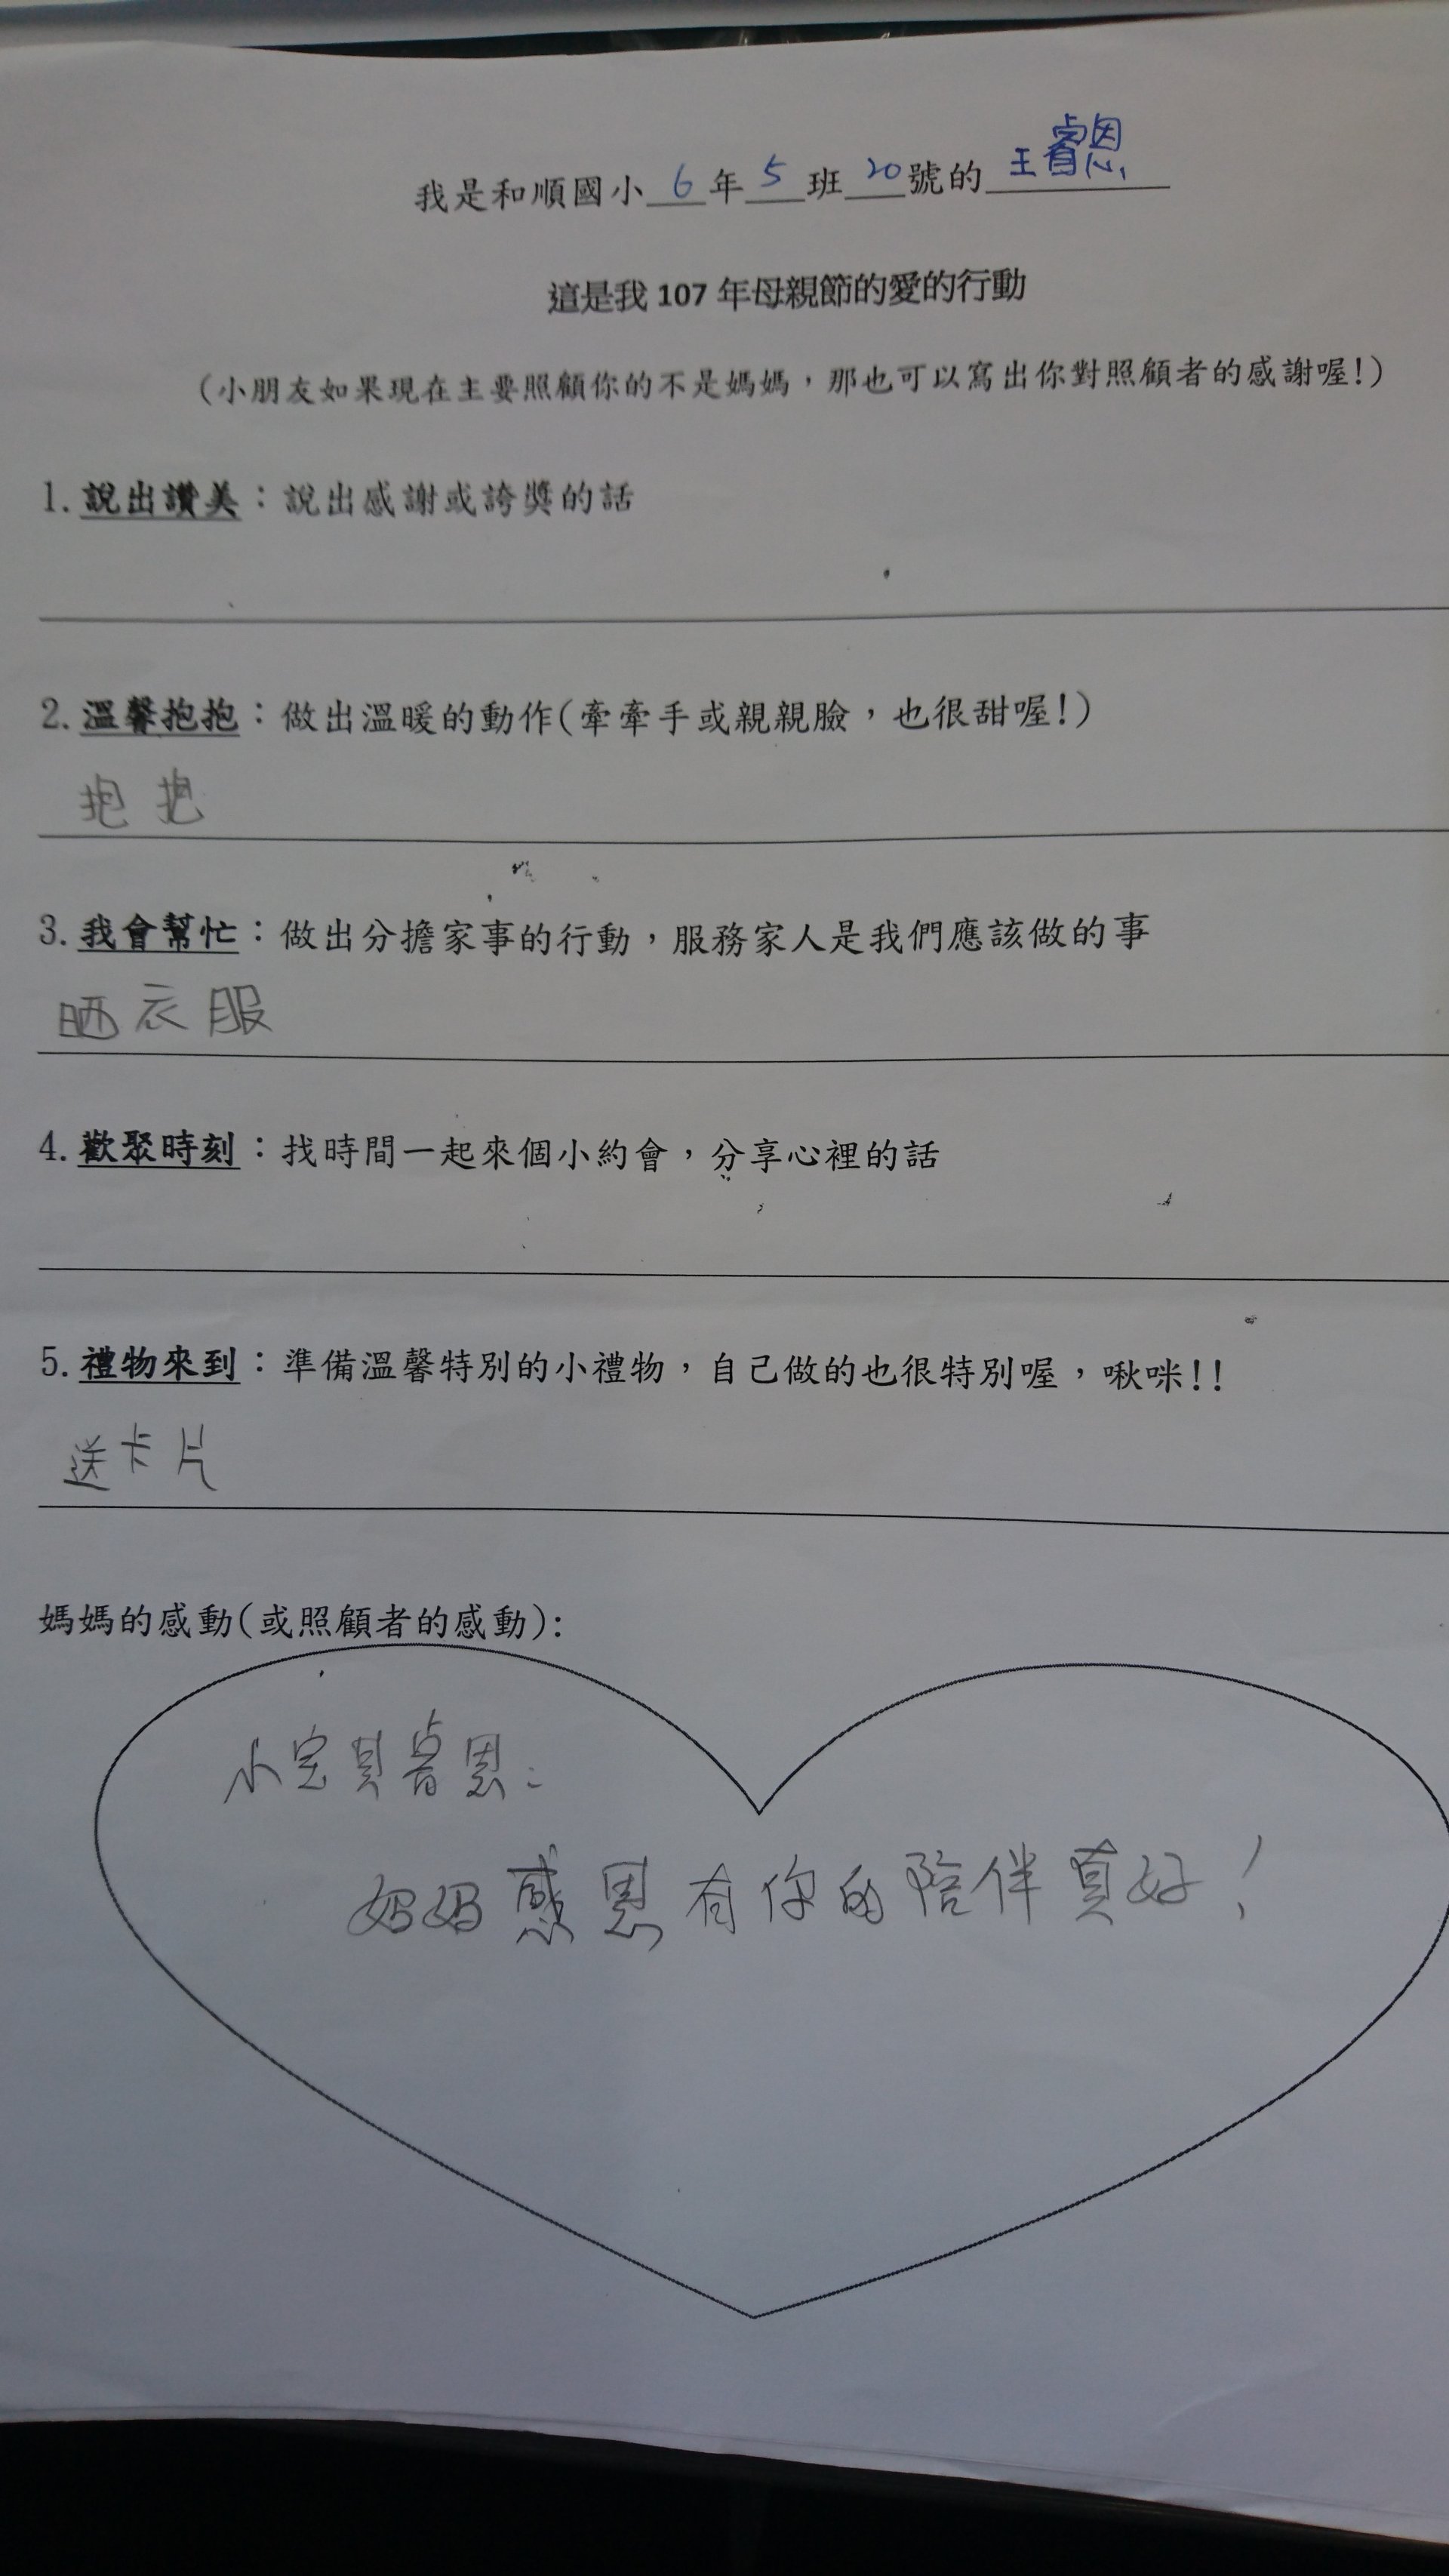 我是和順國小 6 年 5 班 20 號的 王睿恩
這是我 107 年母親節的愛的行動
(小朋友如果現在主要照顧你的不是媽媽，那也可以寫出你對照顧者的感謝喔!)
1. 說出讚美：說出感謝或誇獎的話
2. 溫馨抱抱：做出溫暖的動作(牽牽手或親親臉，也很甜喔!)
抱抱
3. 我會幫忙：做出分擔家事的行動，服務家人是我們應該做的事
晒衣服
4. 歡聚時刻：找時間一起來個小約會，分享心裡的話
5. 禮物來到：準備溫馨特別的小禮物，自己做的也很特別喔，啾咪!!
送卡片
媽媽的感動(或照顧者的感動):
小宝貝睿恩：
媽媽感恩有你的陪伴真好！